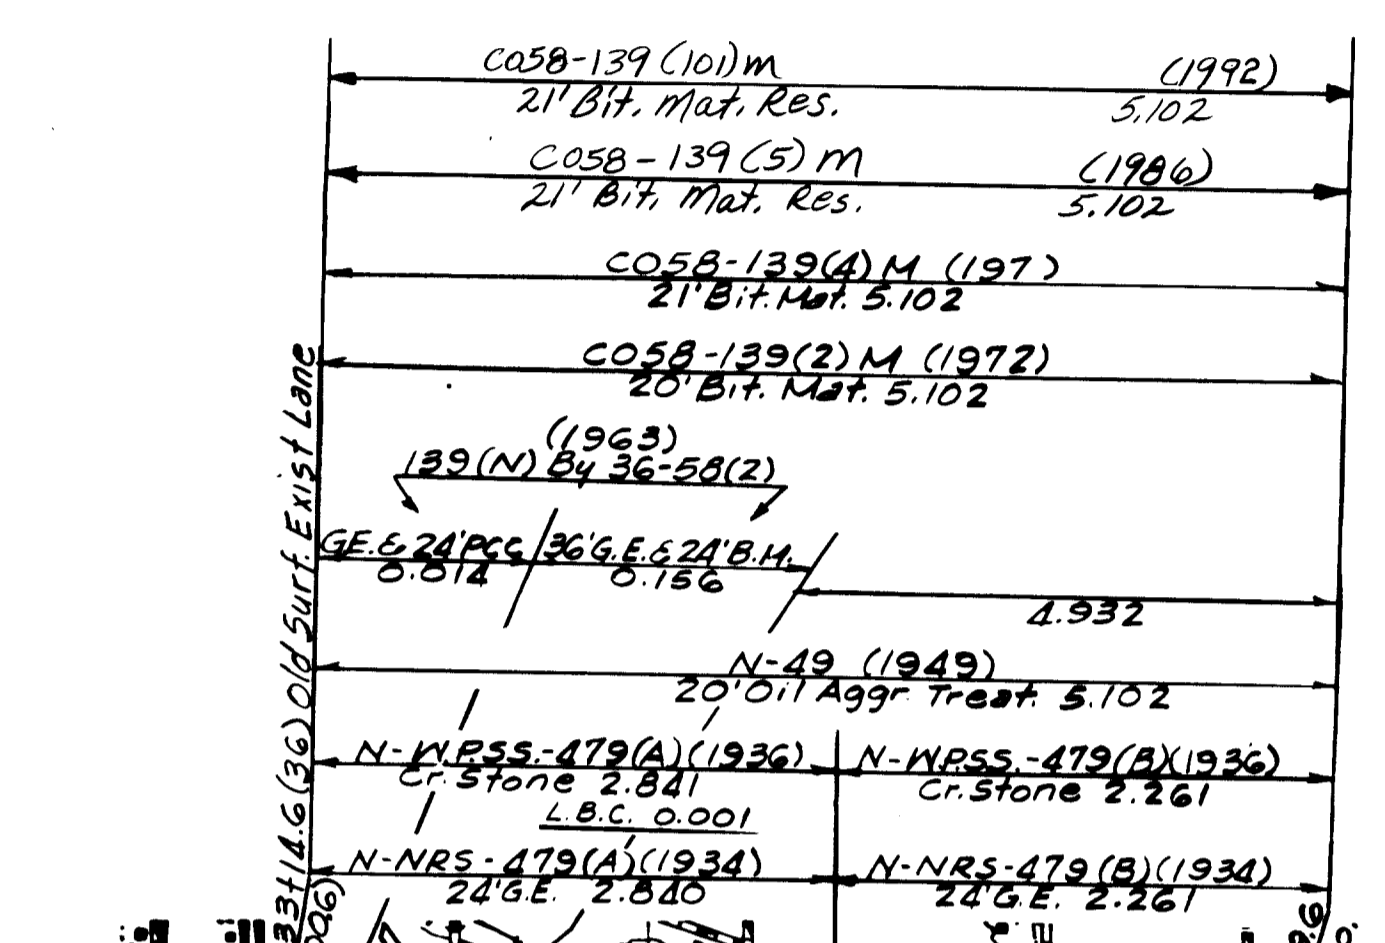 C058-139(101)m (1992)
21' Bit. Mat. Res. 5.102
C058-139(5)m (1986)
21' Bit. Mat. Res. 5.102
C058-139(4)M (197 )
21' Bit. Mat. 5.102
C058-139(2)M (1972)
20' Bit. Mat. 5.102
(1963)
139(N) By 36-58(2)
G.E.&24'PCC 36'G.E.&24'B.M.
0.014 0.156
4.932
N-49 (1949)
20' Oil Aggr. Treat. 5.102
N-W.P.S.S.-479(A)(1936) N-W.P.S.S.-479(B)(1936)
Cr. Stone 2.841 Cr. Stone 2.261
L.B.C. 0.001
N-NRS-479(A)(1934) N-NRS-479(B)(1934)
24'G.E. 2.840 24'G.E. 2.261
33+14.6(36) Old Surf. Exist Lane